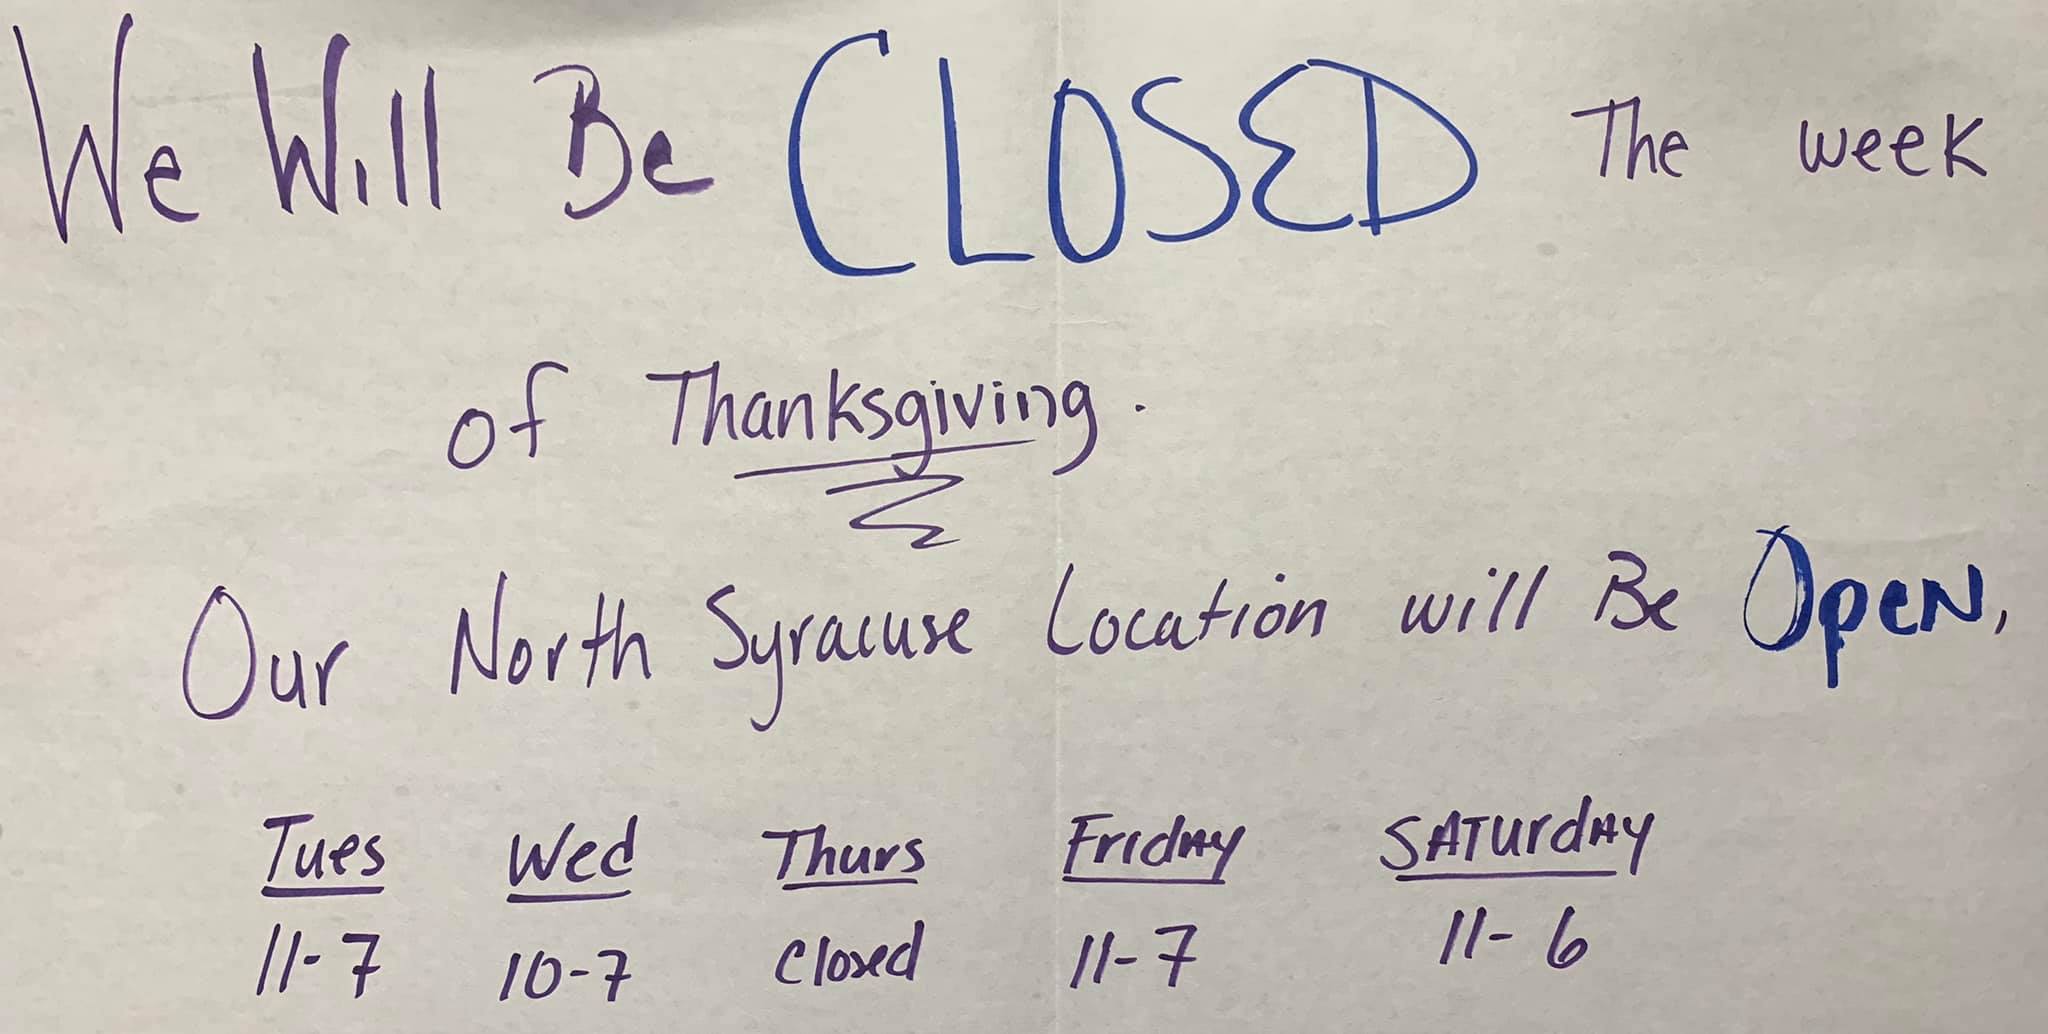 We Will Be CLOSED The week
of Thanksgiving.
Our North Syracuse Location will Be Open,
Tues Wed Thurs Friday SATurdAy
11-7 10-7 closed 11-7 11-6